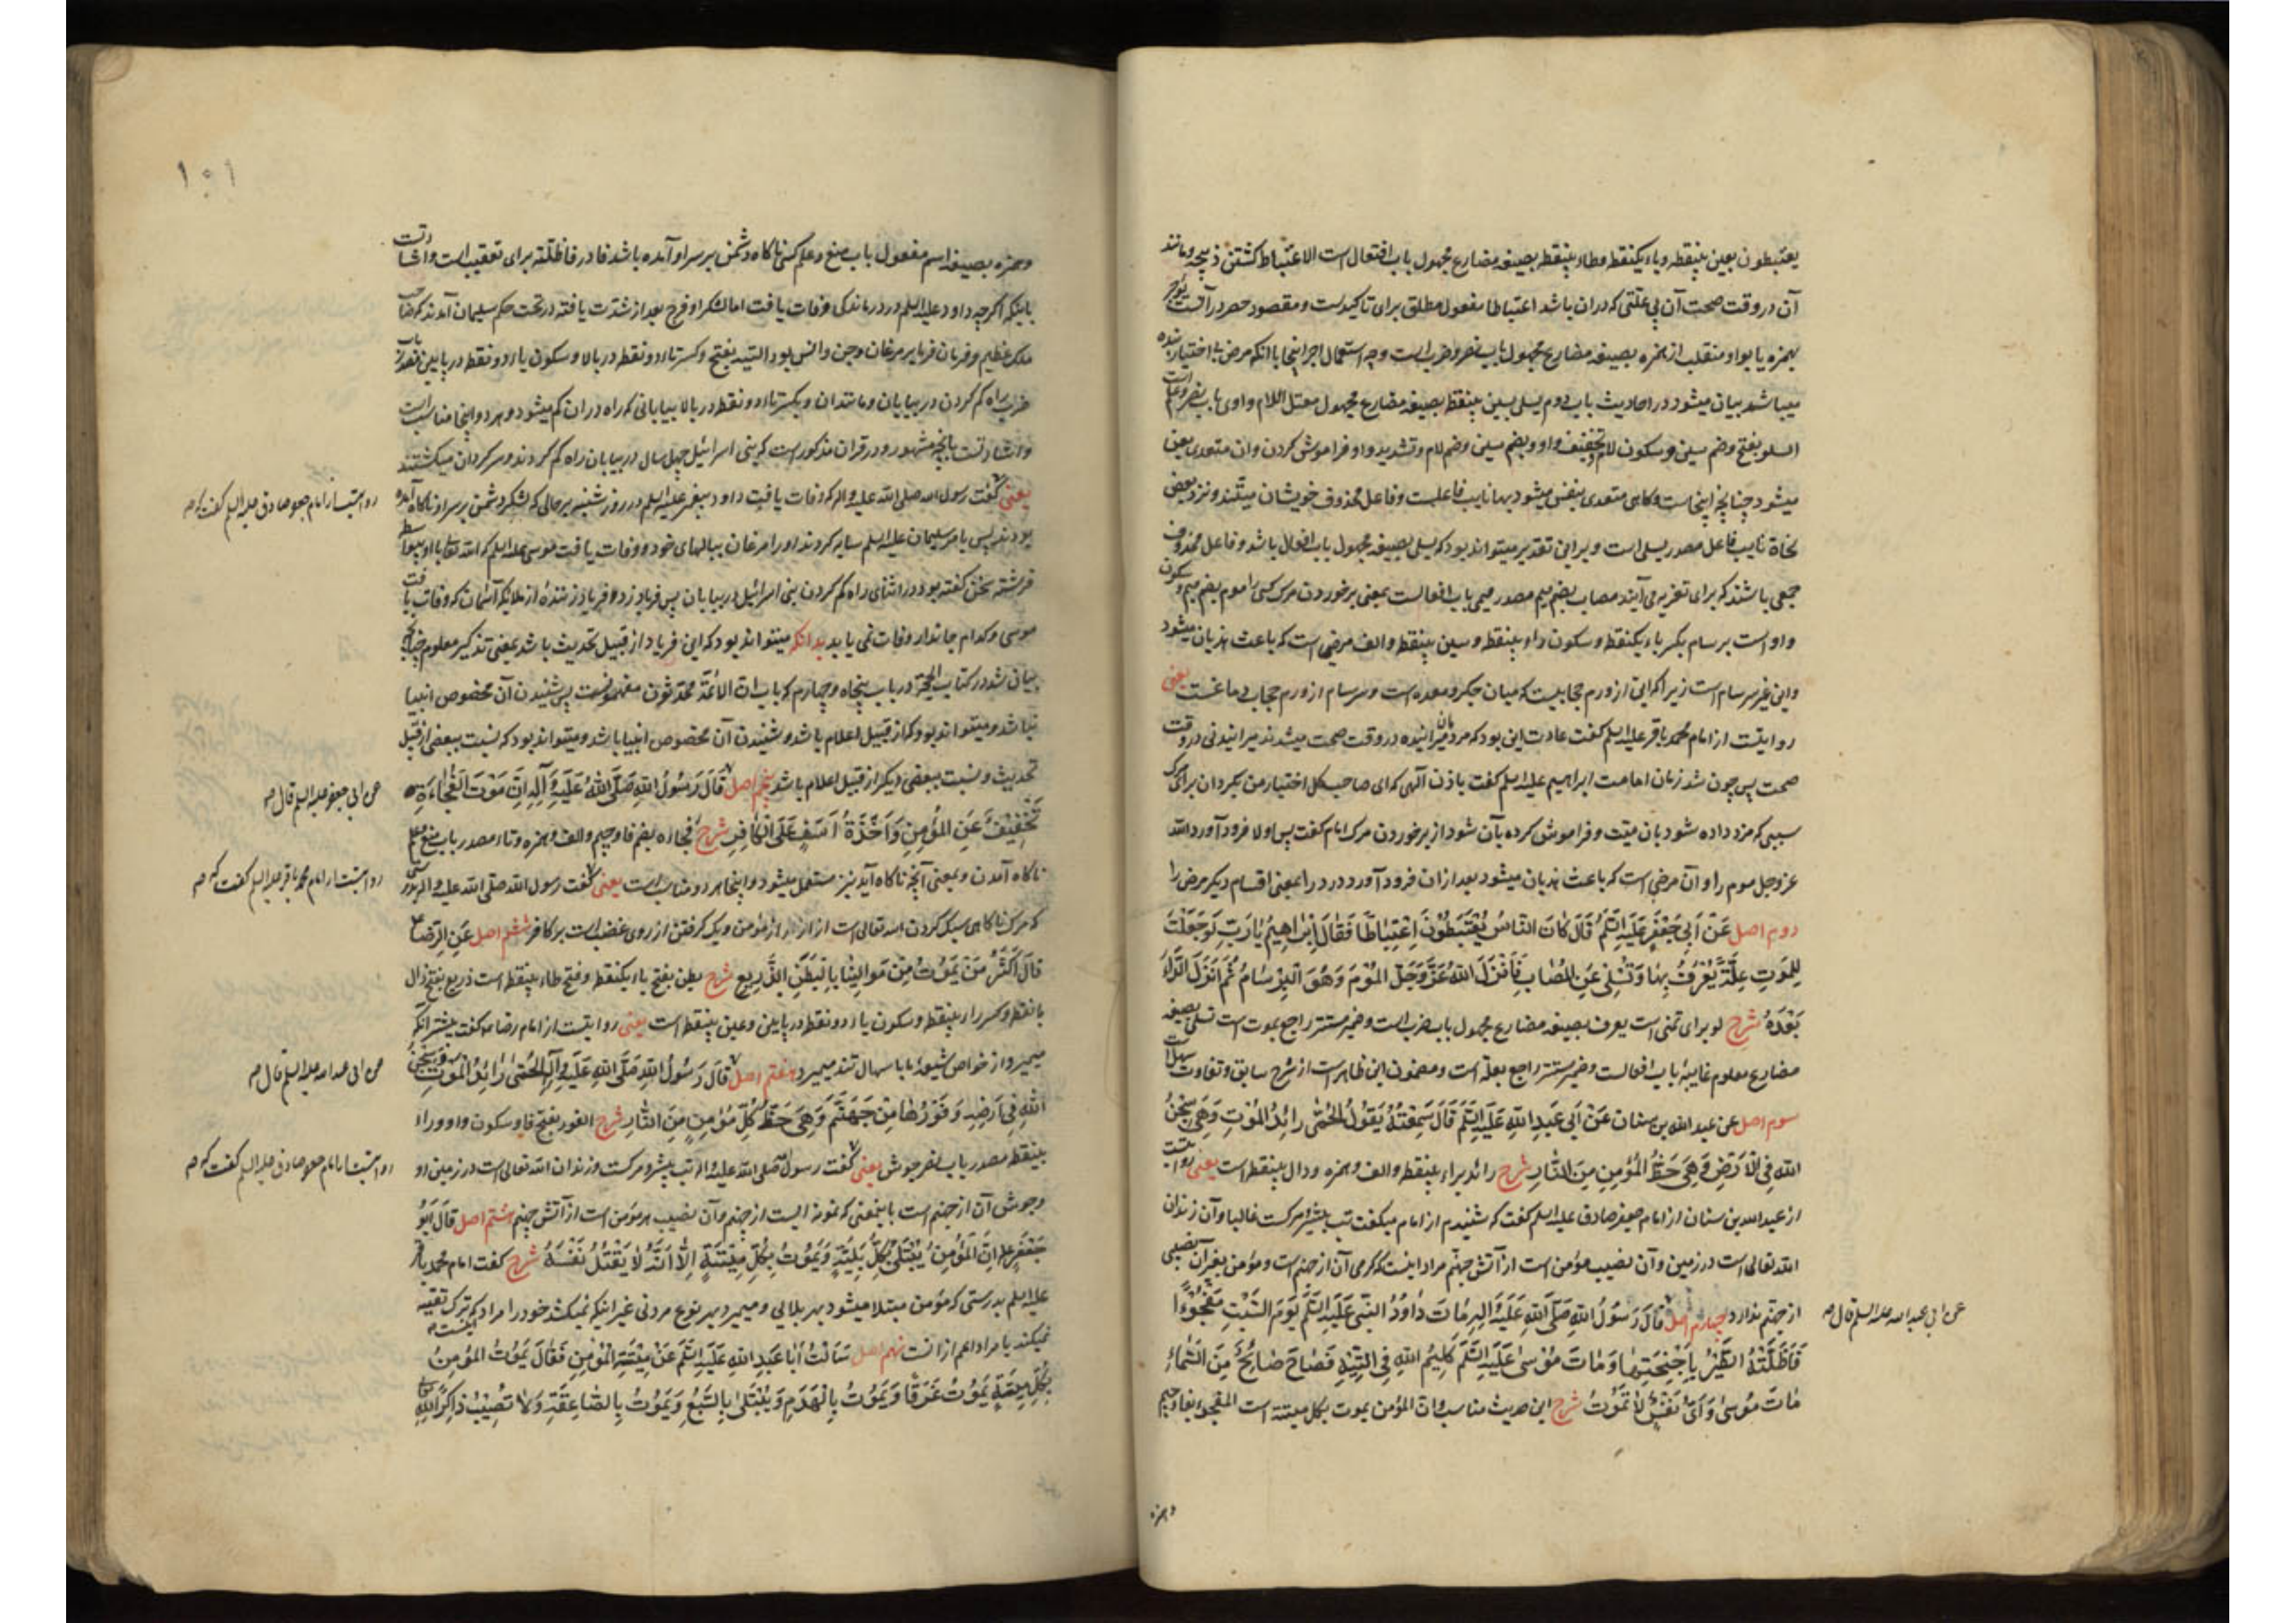 یعتبطون بعین بینقطه و باء یکنقطه و طاء بینقطه بصیغه مضارع مجهول باب افتعال است الاعتباط کشتن ذبیحه و مانند
آن در وقت صحت آن بی علتی که در ان باشد اعتباطا مفعول مطلق برای تاکیدست و مقصود حصر در آفت
بهمزه یا بواو منقلب از همزه بصیغه مضارع مجهول باب نصر و ضرب است وجه استعمال اجر اینجا با آنکه مرض بی اختیار بنده
میباشد بیان میشود در احادیث باب دوم یسلی بسین بینقطه بصیغه مضارع مجهول معتل اللام واوی باب نصر و علم است
السلو بفتح و ضم سین و سکون لام و تخفیف واو و بضم سین و ضم لام و تشدید واو فراموش کردن و ان متعدی بعن
میشود چنانچه اینجاست و کاهی متعدی بنفس میشود بها نایب فاعلست و فاعل محذوف خویشان میتند و نزد بعض
نحاة نایب فاعل مصدر یسلی است و برین تقدیر میتواند بود که یسلی بصیغه مجهول باب افعال باشد و فاعل محذوف
جمعی باشند که برای تعزیه می آیند مصاب بضم میم مصدر میمی باب افعالست بمعنی برخوردن مرک کسی را موم بضم میم و سکون
واو است برسام بکسر باء یکنقطه و سکون راء بینقطه و سین بینقطه و الف مرضی است که باعث هذیان میشود
و این غیر سرسام است زیرا که این از ورم حجابیست که میان جکر و معده است و سرسام از ورم حجاب دماغست یعنی
روایتست از امام محمد باقر علیه السلم گفت عادت این بود که مردمان میرانیده در وقت صحت میشدند میرانیدنی در وقت
صحت پس چون شد زمان امامت ابراهیم علیه السلم گفت باذن آلهی که ای صاحب کل اختیار من بگردان برای مرک
سببی که مزد داده شود بان میت و فراموش کرده بآن شود از برخوردن مرک امام گفت پس اولا فرود آورد الله
عز وجل موم را و آن مرضی است که باعث هذیان میشود بعد از ان فرود آورد درد را بمعنی اقسام دیگر مرض را
دوم اصل عَنْ اَبِی جَعْفَرٍ عَلَیْهِ السَّلَمُ قَالَ کَانَ النَّاسُ یُعْتَبَطُوْنَ اِعْتِبَاطًا فَقَالَ اِبْرَاهِیْمُ یَا رَبِّ لَوْ جَعَلْتَ
لِلْمَوْتِ عِلَّةً یُعْرَفُ بِهَا وَ تُسْلِی عَنِ الْمُصَابِ فَاَنْزَلَ اللهُ عَزَّ وَجَلَّ الْمُوْمَ وَهُوَ الْبِرْسَامُ ثُمَّ اَنْزَلَ الدَّاءَ
بَعْدَهُ شرح لو برای تمنی است یعرف بصیغه مضارع مجهول باب ضرب است و ضمیر مستتر راجع بموت است تسلی بصیغه
مضارع معلوم غایبهٔ باب افعالست و ضمیر مستتر راجع بعلة است و مضمون این ظاهر است از شرح سابق و تفاوت سهل است
سوم اصل عن عبد الله بن سنان عَنْ اَبِی عَبْدِ اللهِ عَلَیْهِ السَّلَمُ قَالَ سَمِعْتُهُ یَقُولُ الْحُمّٰی رَائِدُ الْمَوْتِ وَهِیَ سِجْنُ
اللهِ فِی الْاَرْضِ وَهِیَ حَظُّ الْمُؤْمِنِ مِنَ النَّارِ شرح رائد براء بینقطه و الف و همزه و دال بینقطه است یعنی روایتست
از عبد الله بن سنان از امام جعفر صادق علیه السلم گفت که شنیدم از امام میگفت تب پیشرو مرگست غالبا و آن زندان
الله تعالی است در زمین و آن نصیب مؤمن است از آتش جهنم مراد اینست که گرمی آن از جهنم است و مؤمن بغیر آن نصیبی
از جهنم ندارد چهارم اصل قَالَ رَسُوْلُ اللهِ صَلَّی اللهِ عَلَیْهِ وَالِهِ مَاتَ دَاوُدُ النَّبِیُّ عَلَیْهِ السَّلَمُ یَوْمَ السَّبْتِ مَفْجُوْءًا
عن ابی عبد الله علیه السلم قال صح
فَاَظَلَّتْهُ الطَّیْرُ بِاَجْنِحَتِهَا وَمَاتَ مُوْسٰی عَلَیْهِ السَّلَمُ کَلِیْمُ اللهِ فِی التِّیْهِ فَصَاحَ صَائِحٌ مِنَ السَّمَاءِ
مَاتَ مُوْسٰی وَ اَیُّ نَفْسٍ لَا تَمُوْتُ شرح این حدیث مناسب وان المؤمن یموت بکل میتته است المفجوء بفا و جیم
وهمزه
۱۰۱
وهمزه بصیغه اسم مفعول باب منع و علم کسی ناکاه دشمن بر سر او آمده باشد فا در فاظلته برای تعقیب است و اشارتست
باینکه اگرچه داود علیه السلم در درماندکی وفات یافت اما لشکر او فرج بعد از شدت یافته در تحت حکم سلیمان آمدند که صاحب
ملک عظیم و فرمان فرما بر مرغان و جن و انس بود التیه بفتح و کسر تاء دو نقطه در بالا و سکون یاء دو نقطه در پایین مصدر باب
ضرب راه گم کردن در بیابان و مانند ان و بکسر تاء دو نقطه در بالا بیابانی که راه در ان گم میشود و هر دو اینجا مناسب است
و اشارتست بانچه مشهور و در قران مذکور است که بنی اسرائیل چهل سال در بیابان راه گم کردند و سرکردان میکشتند
یعنی گفت رسول الله صلی الله علیه و اله که وفات یافت داود پیغمبر علیه السلم در روز شنبه بر حالی که لشکر دشمن بر سر او ناکاه آمده
روایتست از امام جعفر صادق علیه السلم گفت که صح
بودند پس بامر سلیمان علیه السلم سایه کردند او را مرغان ببالهای خود و وفات یافت موسی علیه السلم که الله تعالی با او بیواسطه
فرشته سخن گفته بود در اثنای راه گم کردن بنی اسرائیل در بیابان پس فریاد زد فریاد زننده از ملائکه آسمان که وفات یافت
موسی و کدام جاندار وفات نمی یابد بدانکه میتواند بود که این فریاد از قبیل تحدیث باشد بمعنی تذکیر معلوم چنانچه
بیان شد در کتاب الحجة در باب پنجاه و چهارم که باب ان الائمة محدثون مفهمونست پس شنیدن آن مخصوص انبیا
نباشد و میتواند بود که از قبیل اعلام باشد و شنیدن آن مخصوص انبیا باشد و میتواند بود که نسبت ببعضی از قبیل
تحدیث و نسبت ببعضی دیگر از قبیل اعلام باشد پنجم اصل قَالَ رَسُوْلُ اللهِ صَلَّی اللهُ عَلَیْهِ وَ آلِهِ اِنَّ مَوْتَ الْفُجَاءَةِ
عن ابی جعفر علیه السلم قال صح
تَخْفِیْفٌ عَنِ الْمُؤْمِنِ وَ اَخْذَةُ اَسَفٍ عَلَی الْکَافِرِ شرح فجاءه بضم فا و جیم و الف و همزه و تاء مصدر باب منع و علم
ناکاه آمدن و بمعنی آنچه ناکاه آید نیز مستعمل میشود و اینجا هر دو مناسب است یعنی گفت رسول الله صلی الله علیه و اله بدرستی
روایتست از امام محمد باقر علیه السلم گفت که صح
که مرک ناکاهی سبک کردن الله تعالی است ازار را از مؤمن و یک گرفتن از روی غضب است بر کافر ششم اصل عَنِ الرِّضَا
قَالَ اَکْثَرُ مَنْ یَمُوْتُ مِنْ مَوَالِیْنَا بِالْبَطَنِ الذَّرِیعِ شرح بطن بفتح باء یکنقطه و فتح طاء بینقطه است ذریع بفتح ذال
بانقطه و کسر راء بینقطه و سکون یاء دو نقطه در پایین و عین بینقطه است یعنی روایتست از امام رضا گفت بیشتر آنکه
میمیرد از خواص شیعهٔ ما باسهال تند میمیرد هفتم اصل قَالَ رَسُوْلُ اللهِ صَلَّی اللهِ عَلَیْهِ وَ آلِهِ الْحُمّٰی رَائِدُ الْمَوْتِ وَ سِجْنُ
عن ابی عبد الله علیه السلم قال صح
اللهِ فِی اَرْضِهِ وَ فَوْرُهَا مِنْ جَهَنَّمَ وَهِیَ حَظُّ کُلِّ مُؤْمِنٍ مِنَ النَّارِ شرح الفور بفتح فا و سکون واو و راء
بینقطه مصدر باب نصر جوش یعنی گفت رسول صلی الله علیه و اله تب پیشرو مرگست و زندان الله تعالی است در زمین او
روایتست از امام جعفر صادق علیه السلم گفت که صح
و جوش آن از جهنم است باینمعنی که نمونه ایست از جهنم و آن نصیب هر مؤمن است از آتش جهنم هشتم اصل قَالَ اَبُو
جَعْفَرٍ اِنَّ الْمُؤْمِنَ یُبْتَلٰی بِکُلِّ بَلِیَّةٍ وَ یَمُوْتُ بِکُلِّ مِیْتَةٍ اِلَّا اَنَّهُ لَا یَقْتُلُ نَفْسَهُ شرح گفت امام محمد باقر
علیه السلم بدرستی که مؤمن مبتلا میشود بهر بلایی و میمیرد بهر نوع مردنی غیر اینکه نمیکشد خود را مراد که ترک تقیه
نمیکند یا مراد اعم از انست نهم اصل سَاَلْتُ اَبَا عَبْدِ اللهِ عَلَیْهِ السَّلَمُ عَنْ مِیْتَةِ الْمُؤْمِنِ فَقَالَ یَمُوْتُ الْمُؤْمِنُ
بِکُلِّ مِیْتَةٍ یَمُوْتُ غَرَقًا وَ یَمُوْتُ بِالْهَدْمِ وَ یُبْتَلٰی بِالسَّبُعِ وَ یَمُوْتُ بِالصَّاعِقَةِ وَلَا تُصِیْبُ ذَاکِرًا لِلّٰهِ